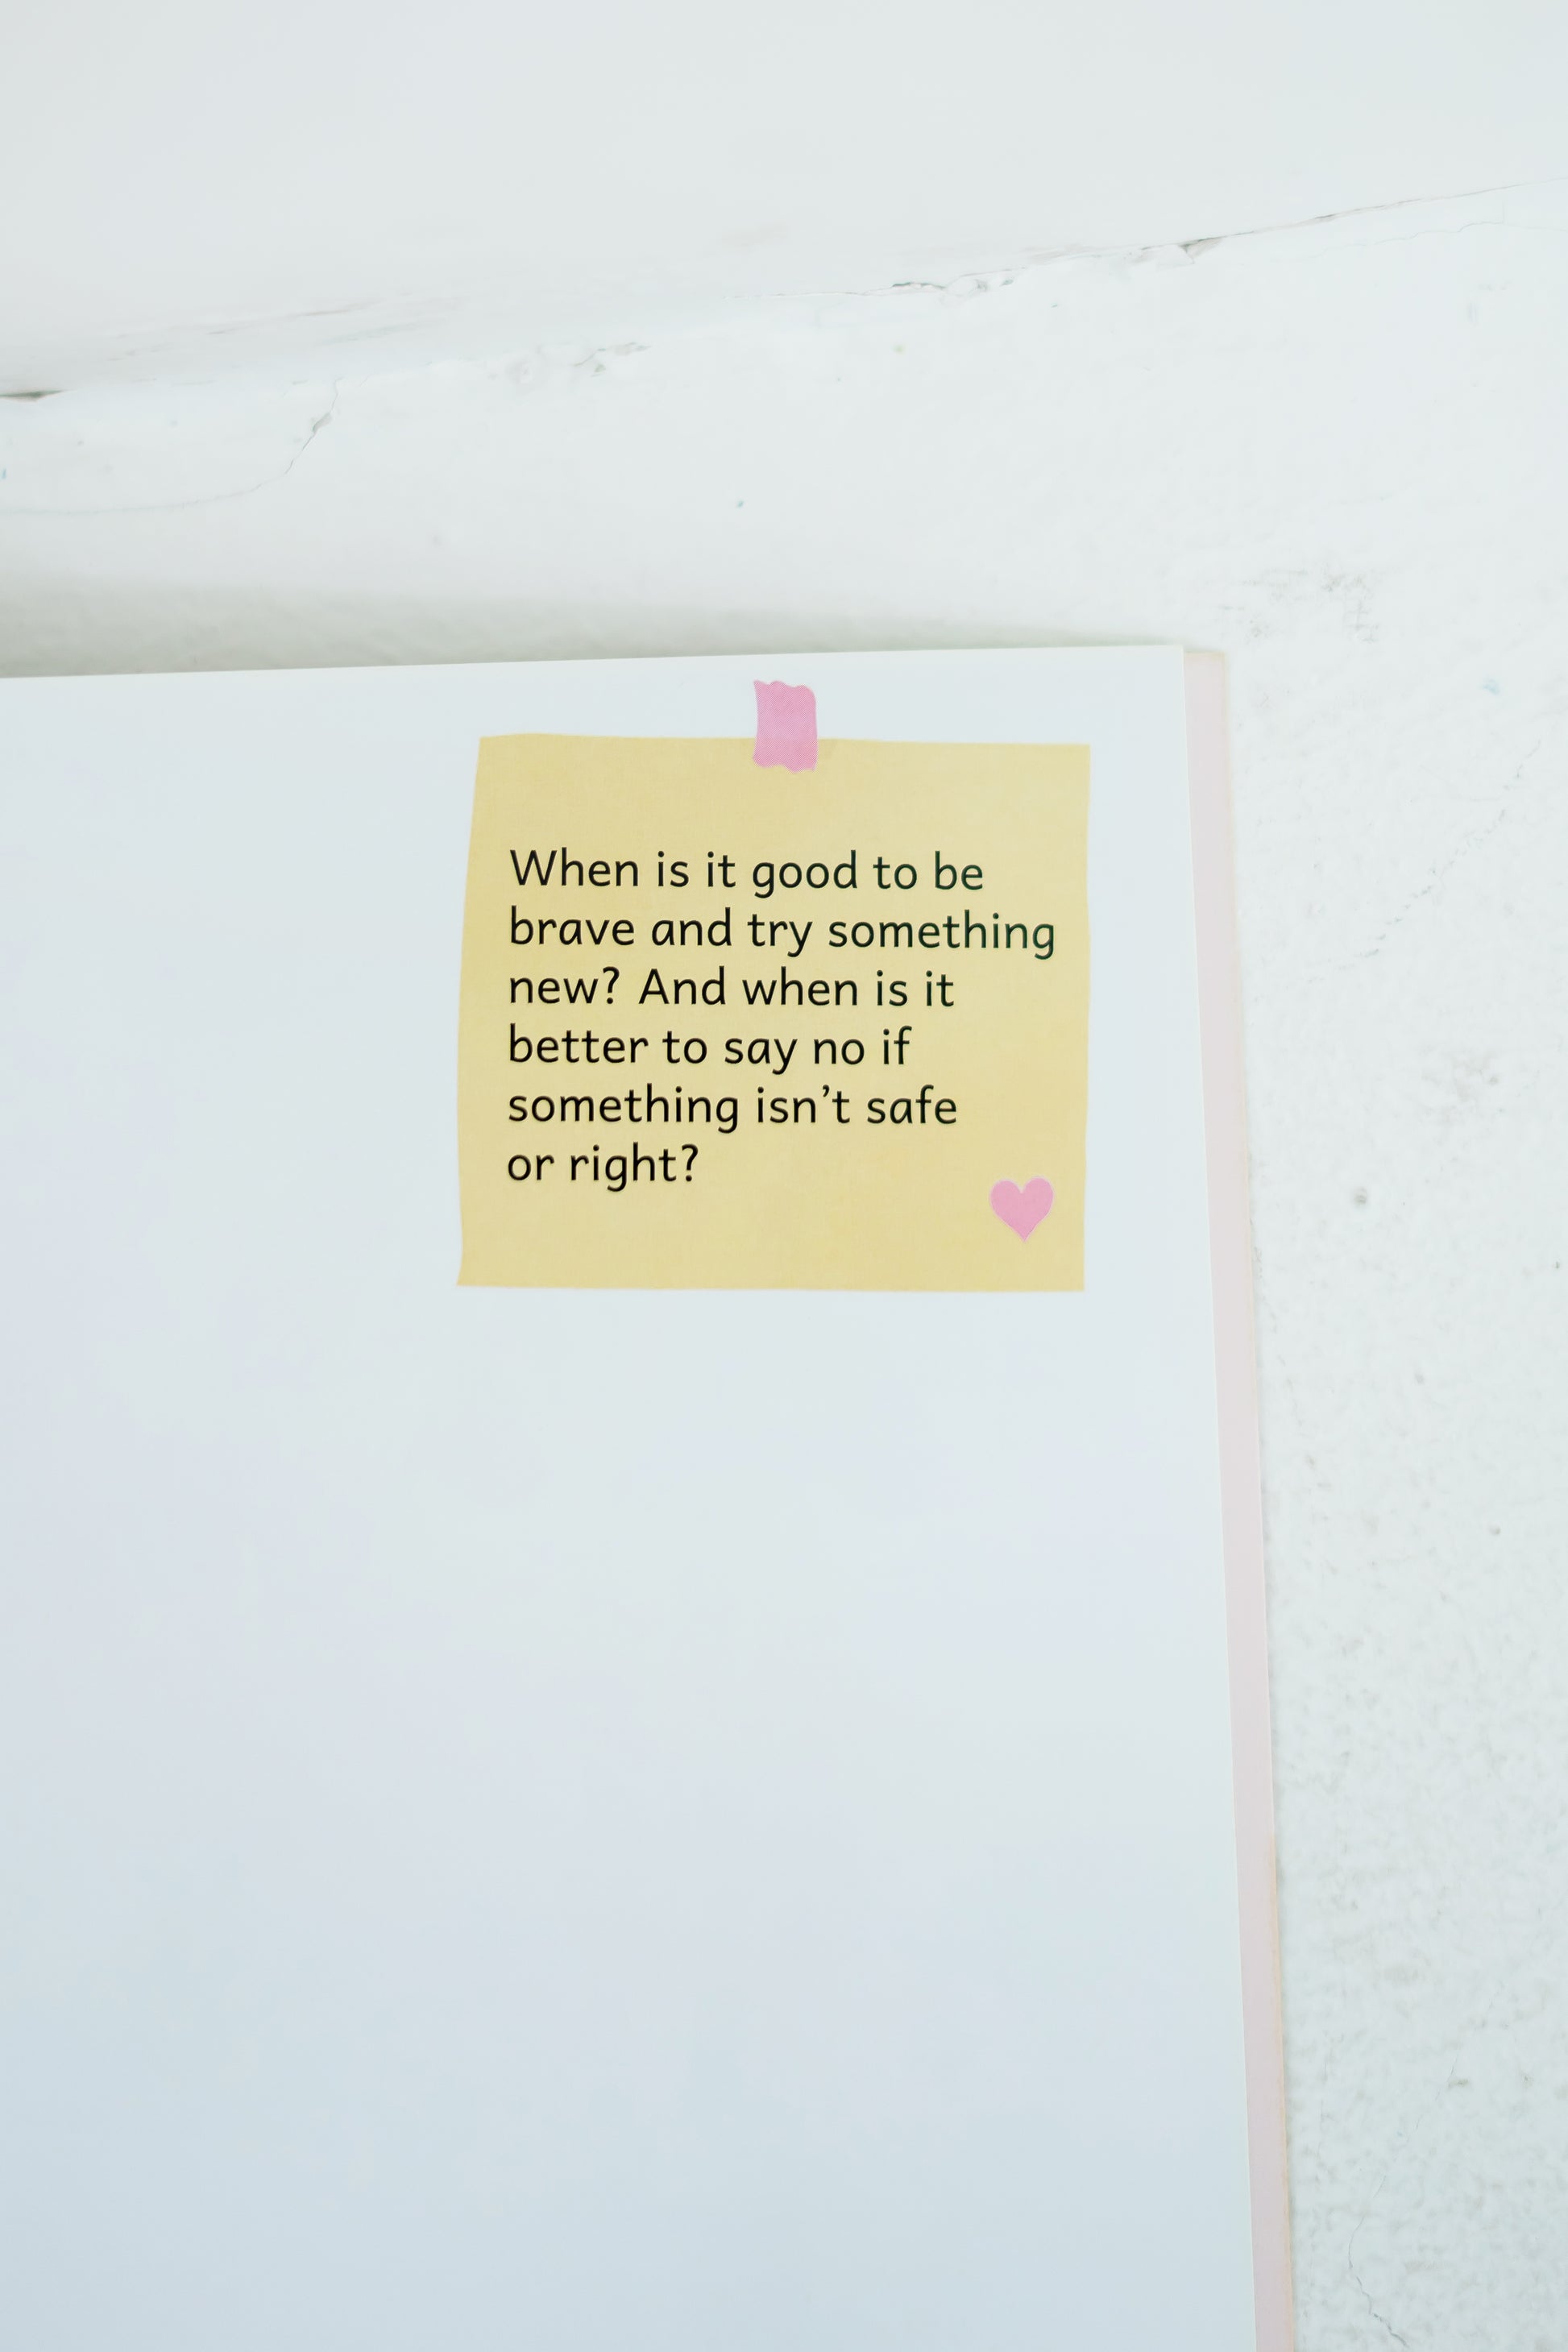 When is it good to be
brave and try something
new? And when is it
better to say no if
something isn’t safe
or right?